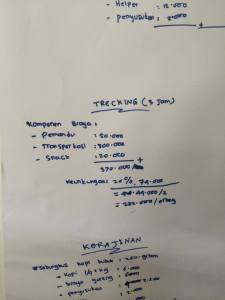 - Helper : 12.000
- penyusutan : 2.000
+
TRECKING (3 Jam)
Komponen Biaya :
- Pemandu : 50.000
- Transportasi : 300.000
- Snack : 20.000 +
370.000
Keuntungan : 20% 74.000
= 444.000/2
= 222.000/orang
KERAJINAN
kopi
- kopi : 6.000
- biaya goreng
- penyusutan :